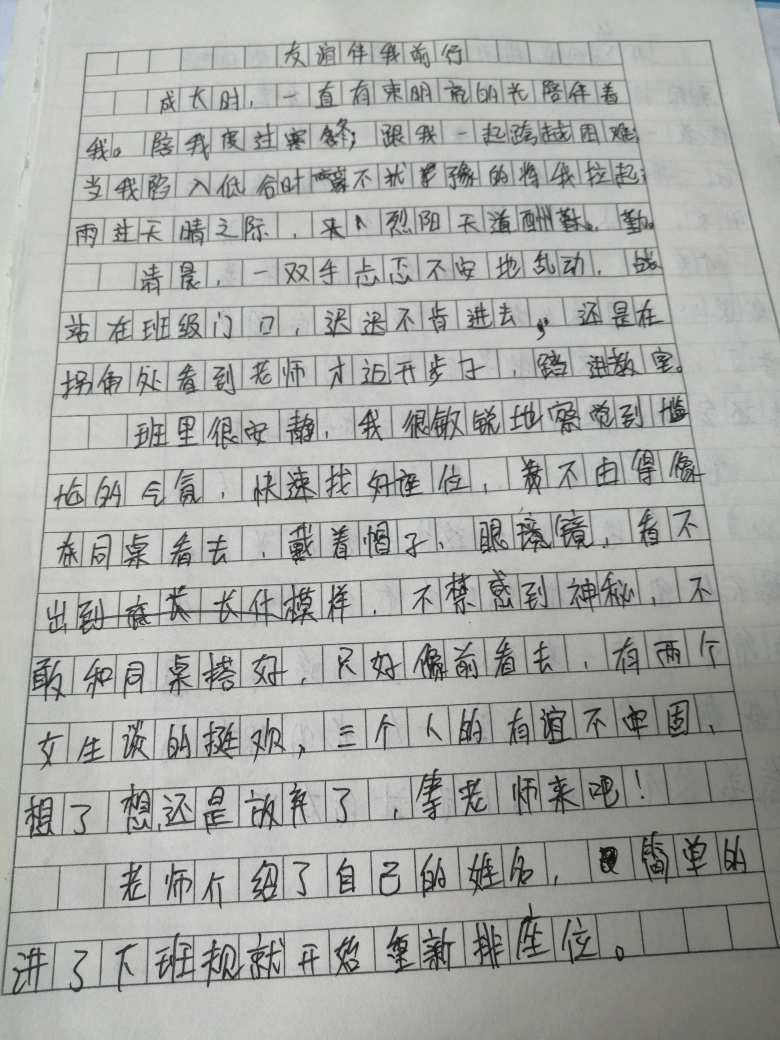 友谊伴我前行
成长时,一直有束明亮的光陪伴着
我。陪我度过寒冬;跟我一起跨越困难;
当我陷入低谷时不犹豫的将我拉起;
雨过天晴之际,来烈阳天道酬勤。勤。
清晨,一双手忐忑不安地乱动,战
站在班级门口,迟迟不肯进去,还是在
拐角处看到老师才迈开步子,踏进教室。
班里很安静,我很敏锐地察觉到尴
尬的气氛,快速找好座位,不由得像
同桌看去,戴着帽子、眼镜,看不
出模样.不禁感到神秘,不
敢和同桌搭好,只好像前看去,有两个
女生谈的挺欢,三个人的有谊不牢固,
想了想还是放弃了,等老师来吧!
老师介绍了自己的姓名,简单的
讲了下班规就开始重新排座位。